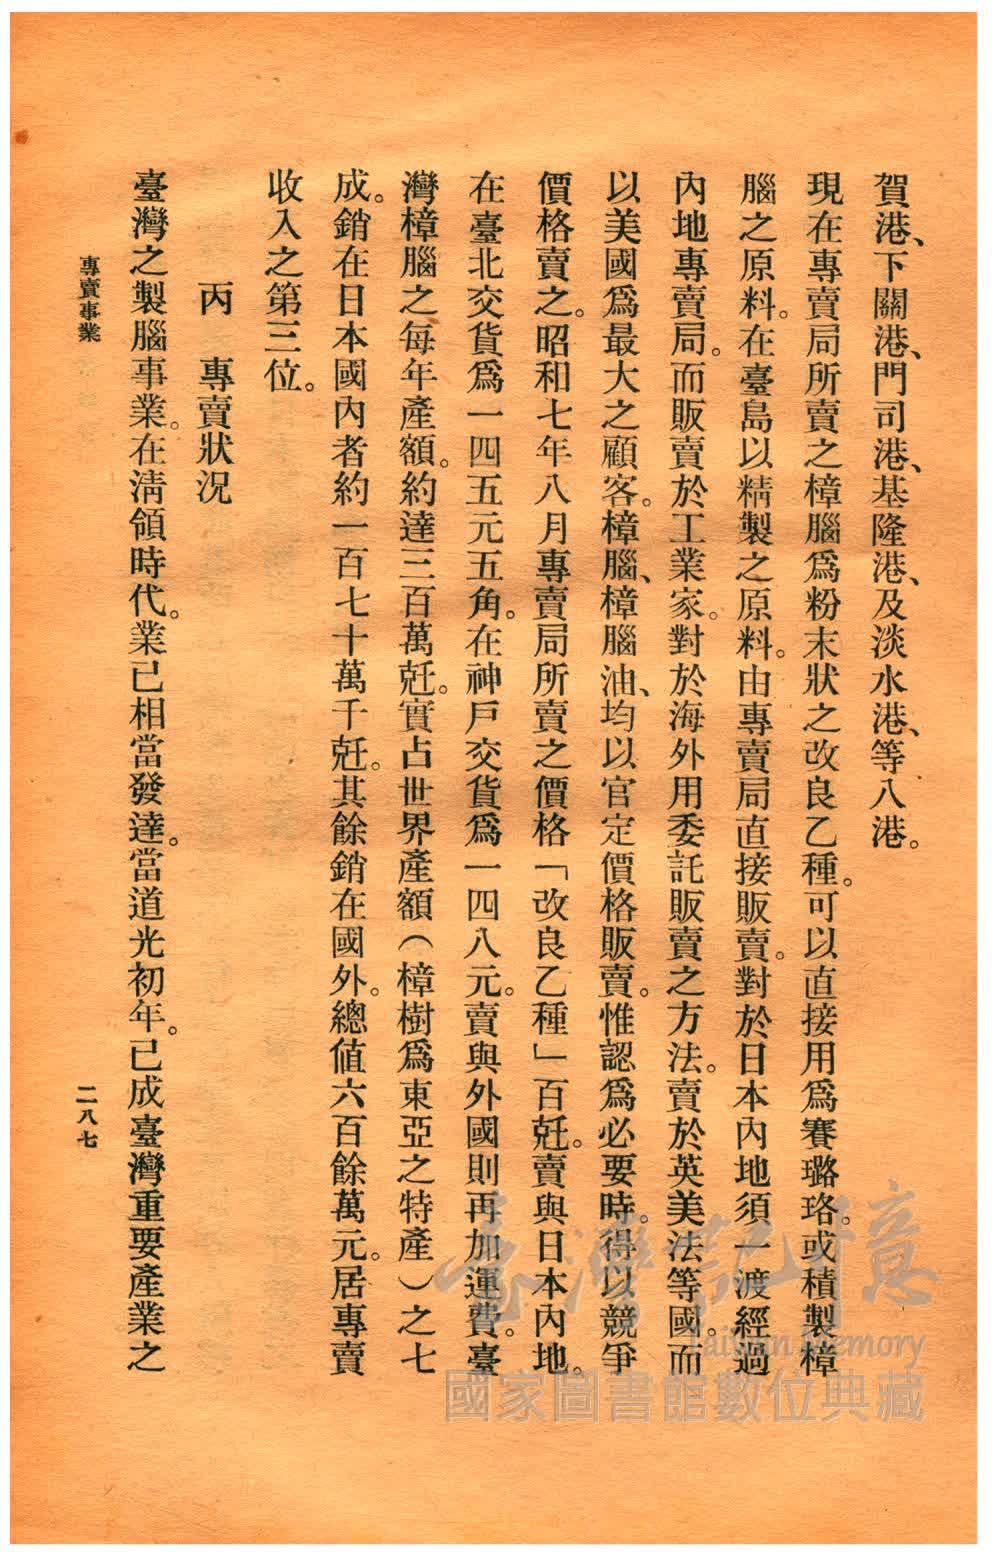 賀港、下關港、門司港、基隆港、及淡水港、等八港。
現在專賣局所賣之樟腦爲粉末狀之改良乙種。可以直接用爲賽璐珞。或積製樟
腦之原料。在臺島以精製之原料。由專賣局直接販賣。對於日本內地須一渡經過
內地專賣局。而販賣於工業家。對於海外用委託販賣之方法。賣於英美法等國。而
以美國爲最大之顧客。樟腦、樟腦油、均以官定價格販賣。惟認爲必要時。得以競爭
價格賣之。昭和七年八月專賣局所賣之價格「改良乙種」百兛。賣與日本內地。
在臺北交貨爲一四五元五角。在神戶交貨爲一四八元。賣與外國則再加運費。臺
灣樟腦之每年產額。約達三百萬兛。實占世界產額（樟樹爲東亞之特產）之七
成。銷在日本國內者約一百七十萬千兛。其餘銷在國外。總值六百餘萬元。居專賣
收入之第三位。
丙　專賣狀況
臺灣之製腦事業。在淸領時代。業已相當發達。當道光初年。已成臺灣重要產業之
專賣事業
二八七
臺灣記憶
Taiwan Memory
國家圖書館數位典藏